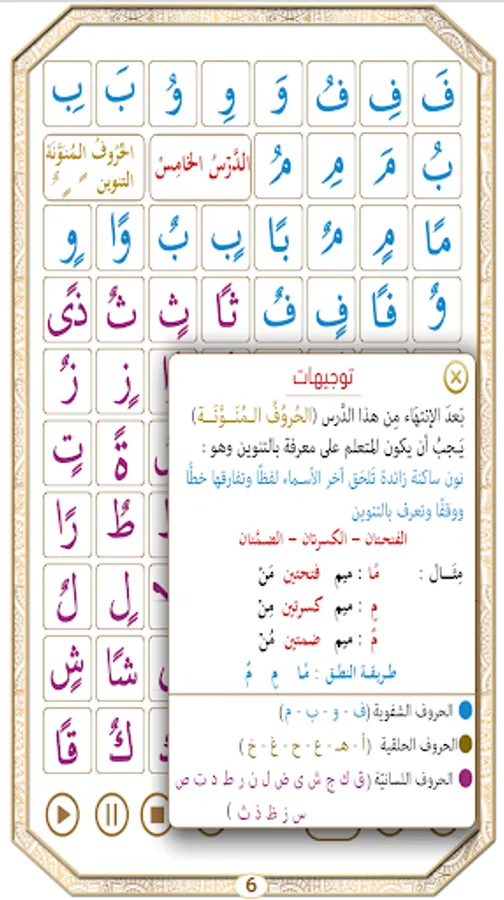 فَ فِ فُ وَ وِ وُ بَ بِ
بُ مَ مِ مُ
الدَّرْسُ الخَامِسُ
الحُرُوفُ المُنَوَّنَة
التنوين ـً ـٍ ـٌ
مًا مٍ مٌ بًا بٍ بٌ وًا وٍ
وٌ فًا فٍ فٌ ثًا ثٍ ثٌ ذًى
زٍ زٌ
ةً تٍ
طٌ رًا
لٍ لٌ
شًا شٍ
كٌ قًا
توجيهات
بَعدَ الإنتهَاء مِن هذا الدَّرس (الحُرُوفُ المُنَوَّنَـة)
يَجبُ أن يكون المتعلم على معرفة بالتنوين وهو :
نون ساكنة زائدة تَلحَق آخر الأسماء لفظًا وتفارقها خطًّا
ووقفًا وتعرف بالتنوين
الفتحتان – الكسرتان – الضمَّتان
مِثَـال : مًا : ميم فتحتين مَنْ
مٍ : ميم كسرتين مِنْ
مٌ : ميم ضمتين مُنْ
طريقـة النطق : مًا مٍ مٌ
الحروف الشفوية (ف - و - ب - م)
الحروف الحلقية (أ - هـ - ع - ح - غ - خ)
الحروف اللسانيّة (ق ك ج ش ي ض ل ن ر ط د ت ص
س ز ظ ذ ث)
6